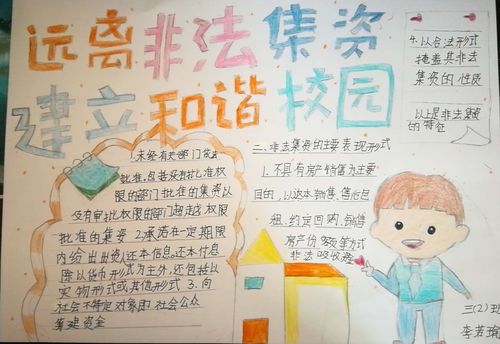 远离非法集资
建立和谐校园
1.未经有关部门依法
批准,包括没有批准权
限的部门批准的集资以
及有审批权限的部门超越权限
批准的集资 2.承诺在一定期限
内给出资人还本付息。还本付息
除以货币形式为主外,还包括以
实物形式或其他形式 3.向
社会不特定对象即社会公众
筹集资金
二、非法集资的主要表现形式
1.不具有房产销售为主要
目的,以返本销售、售后包
租、约定回购、销售
房产份额等方式
非法吸收资
4.以合法形式
掩盖其非法
集资的性质
以上是非法集资
的特征
三(2)班
李若瑜